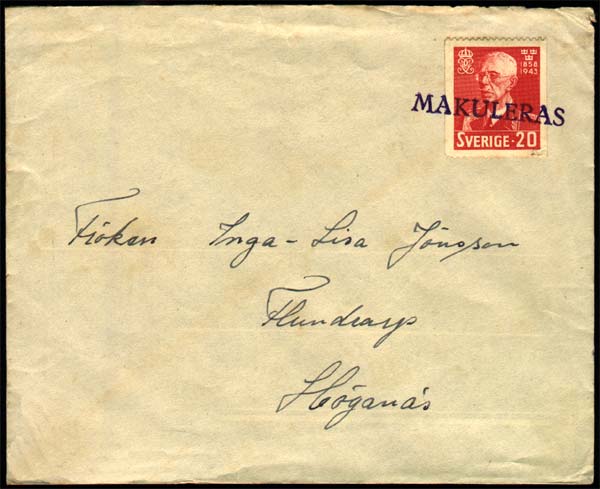 1858
1943
MAKULERAS
SVERIGE·20
Fröken Inga-Lisa Jönsson
Flundrarp
Höganäs